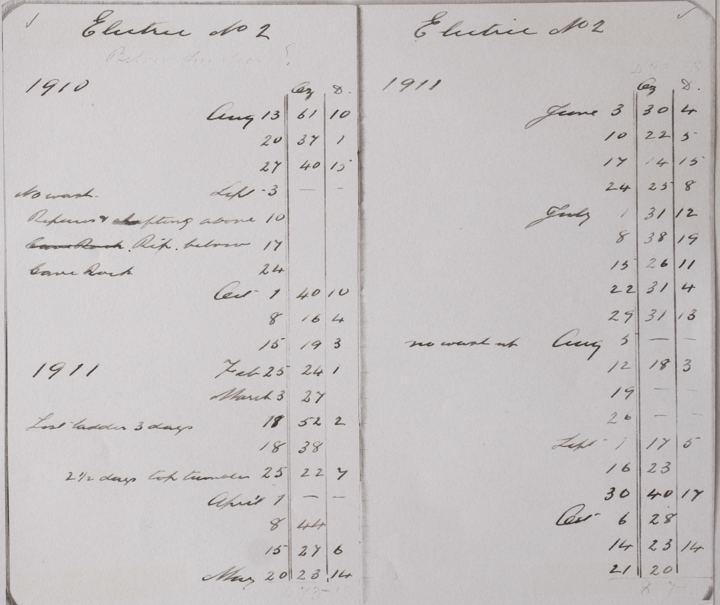 Electric No 2
1910
Oz D.
Aug 13 61 10
20 37 1
27 40 15
No wash. Sept 3 — —
Repairs & shafting above 10
Cave Rock. Rep. below 17
Cave Rock 24
Oct 1 40 10
8 16 4
15 19 3
1911 Feb 25 24 1
March 3 27
Lost ladder 3 days 18 52 2
18 38
2½ days top tumbler 25 22 7
April 1 — —
8 44
15 27 6
May 20 23 14
Electric No 2
1911
Oz D.
June 3 30 4
10 22 5
17 14 15
24 25 8
July 1 31 12
8 38 19
15 26 11
22 31 4
29 31 13
no wash up Aug 5 — —
12 18 3
19 — —
26 — —
Sept 1 17 5
16 23
30 40 17
Oct 6 28
14 23 14
21 20